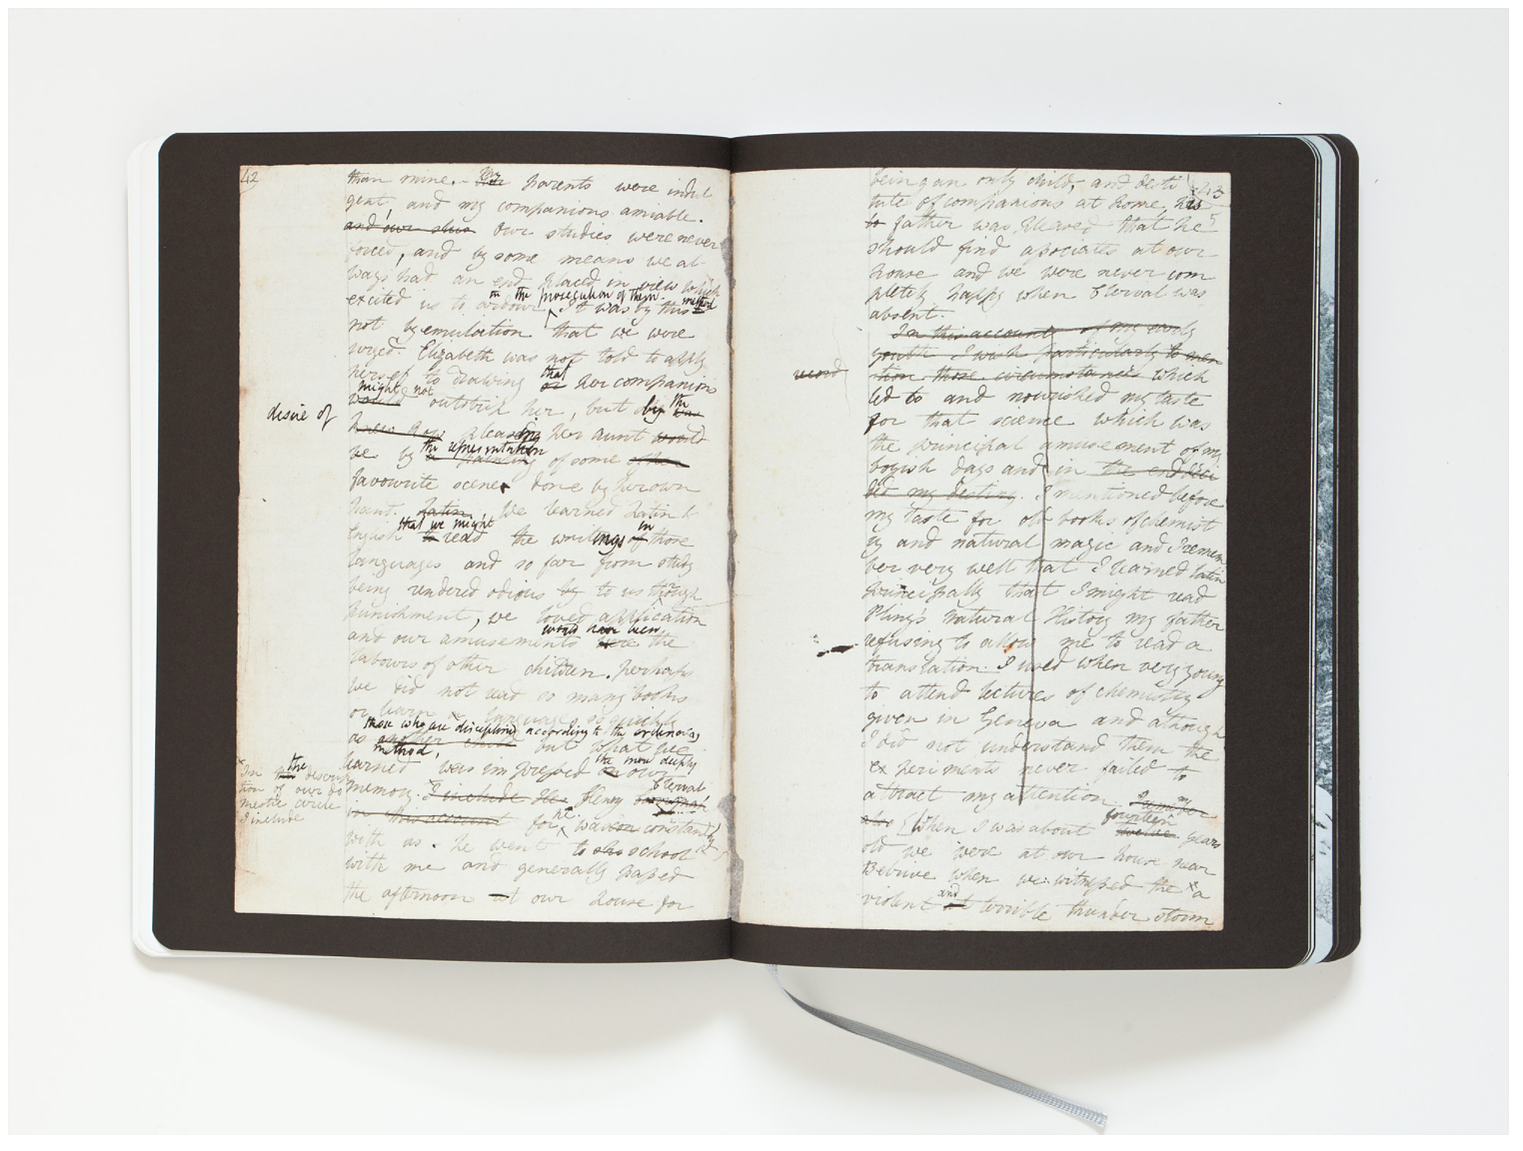 42
than mine. – Her My parents were indul
gent, and my companions amiable.
and our stud Our studies were never
forced, and by some means we al-
ways had an end placed in view which
excited us to ardour in the prosecution of them. It was by this method
not by emulation that we were
urged. Elizabeth was not told to apply
herself to drawing or that her companion
would might not outstrip her, but by the
desire of
knew how pleasing her aunt would
be by the representation of some
favourite scene done by her own
hand. Latin. We learned Latin &
English to that we might read the writings of in those
languages and so far from study
being rendered odious by to us though
punishment, we loved application
and our amusements were would have been the
labours of other children. Perhaps
we did not read so many books
or learn languages so quickly
as another child those who are disciplined according to the ordinary
method, but what we
learned was impressed the more deeply on our
memory. I include Henry Clerval
in the descrip
tion of our do
mestic circle
I include
in this account for he was constantly
with us. he went to school
with me and generally passed
the afternoon at our house for
43
being an only child, and desti
tute of companions at home his
father was pleased that he
should find associates at our
house and we were never com
pletely happy when Clerval was
absent.
In this account of my early
youth I wish particularly to men
tion those circumstances which
led to and nourished my taste
for that science which was
the principal amusement of my
boyish days and in the end deci
ded my destiny. I mentioned before
my taste for old books of chemist
ry and natural magic and I remem
ber very well that I learned latin
principally that I might read
Pliny's natural History my father
refusing to allow me to read a
translation. I used when very young
to attend lectures of chemistry
given in Geneva and although
I did not understand them the
experiments never failed to
attract my attention.
When I was about twelve fourteen years
old we were at our house near
Belrive when we witnessed the a
violent and terrible thunder storm